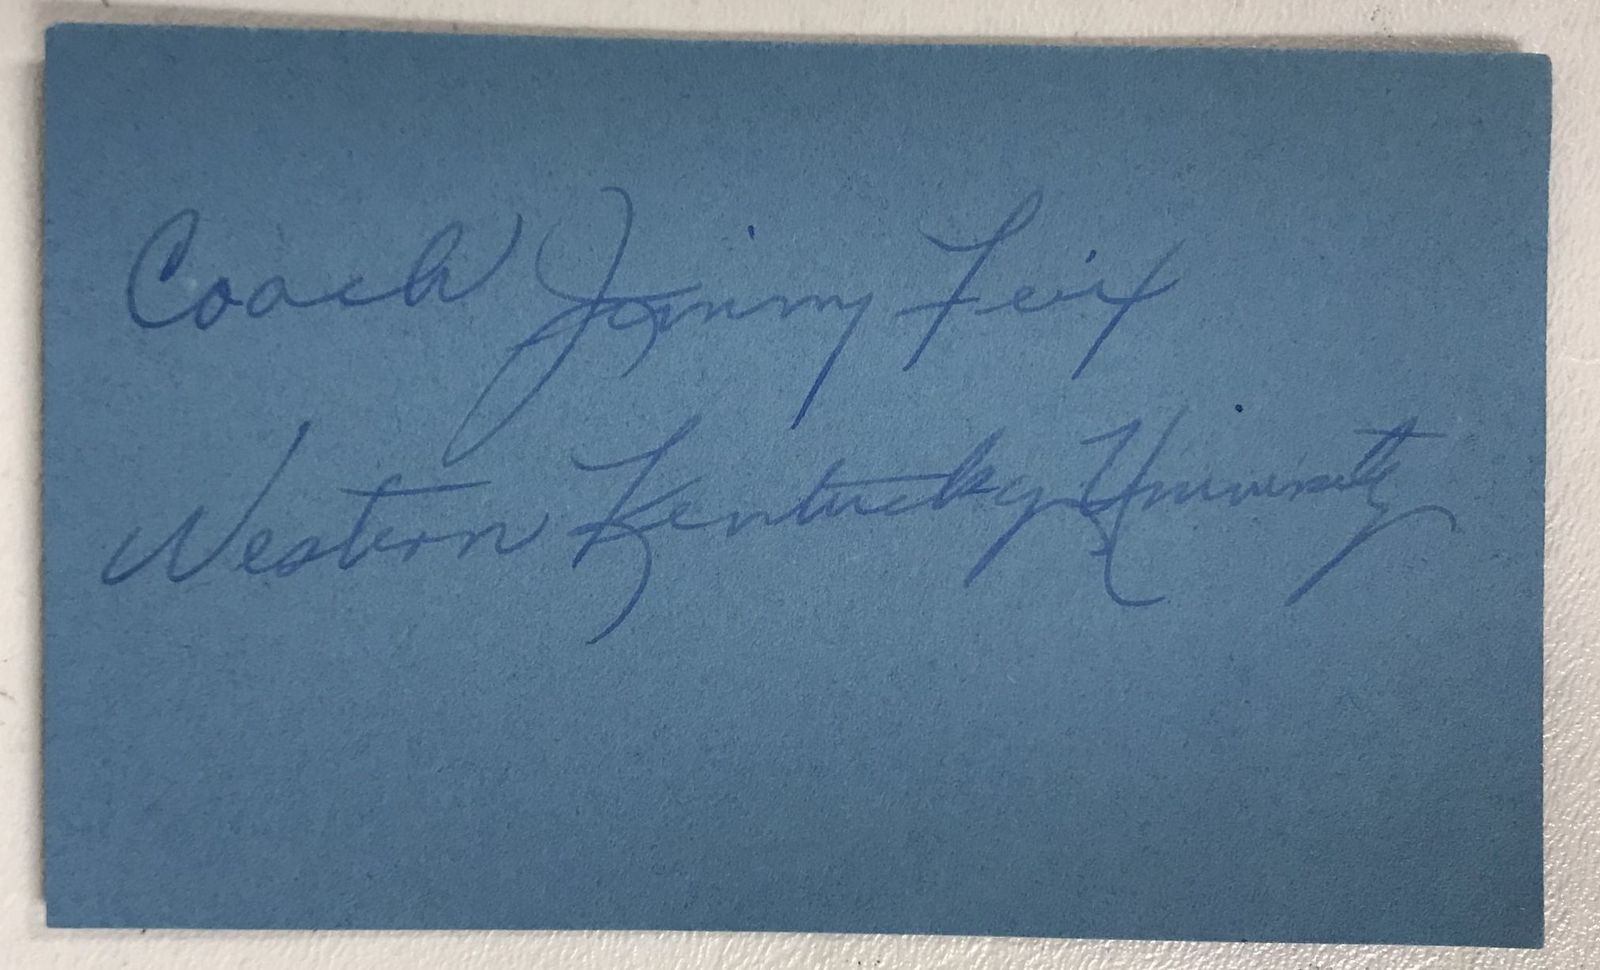 Coach Jimmy Feix
Western Kentucky University